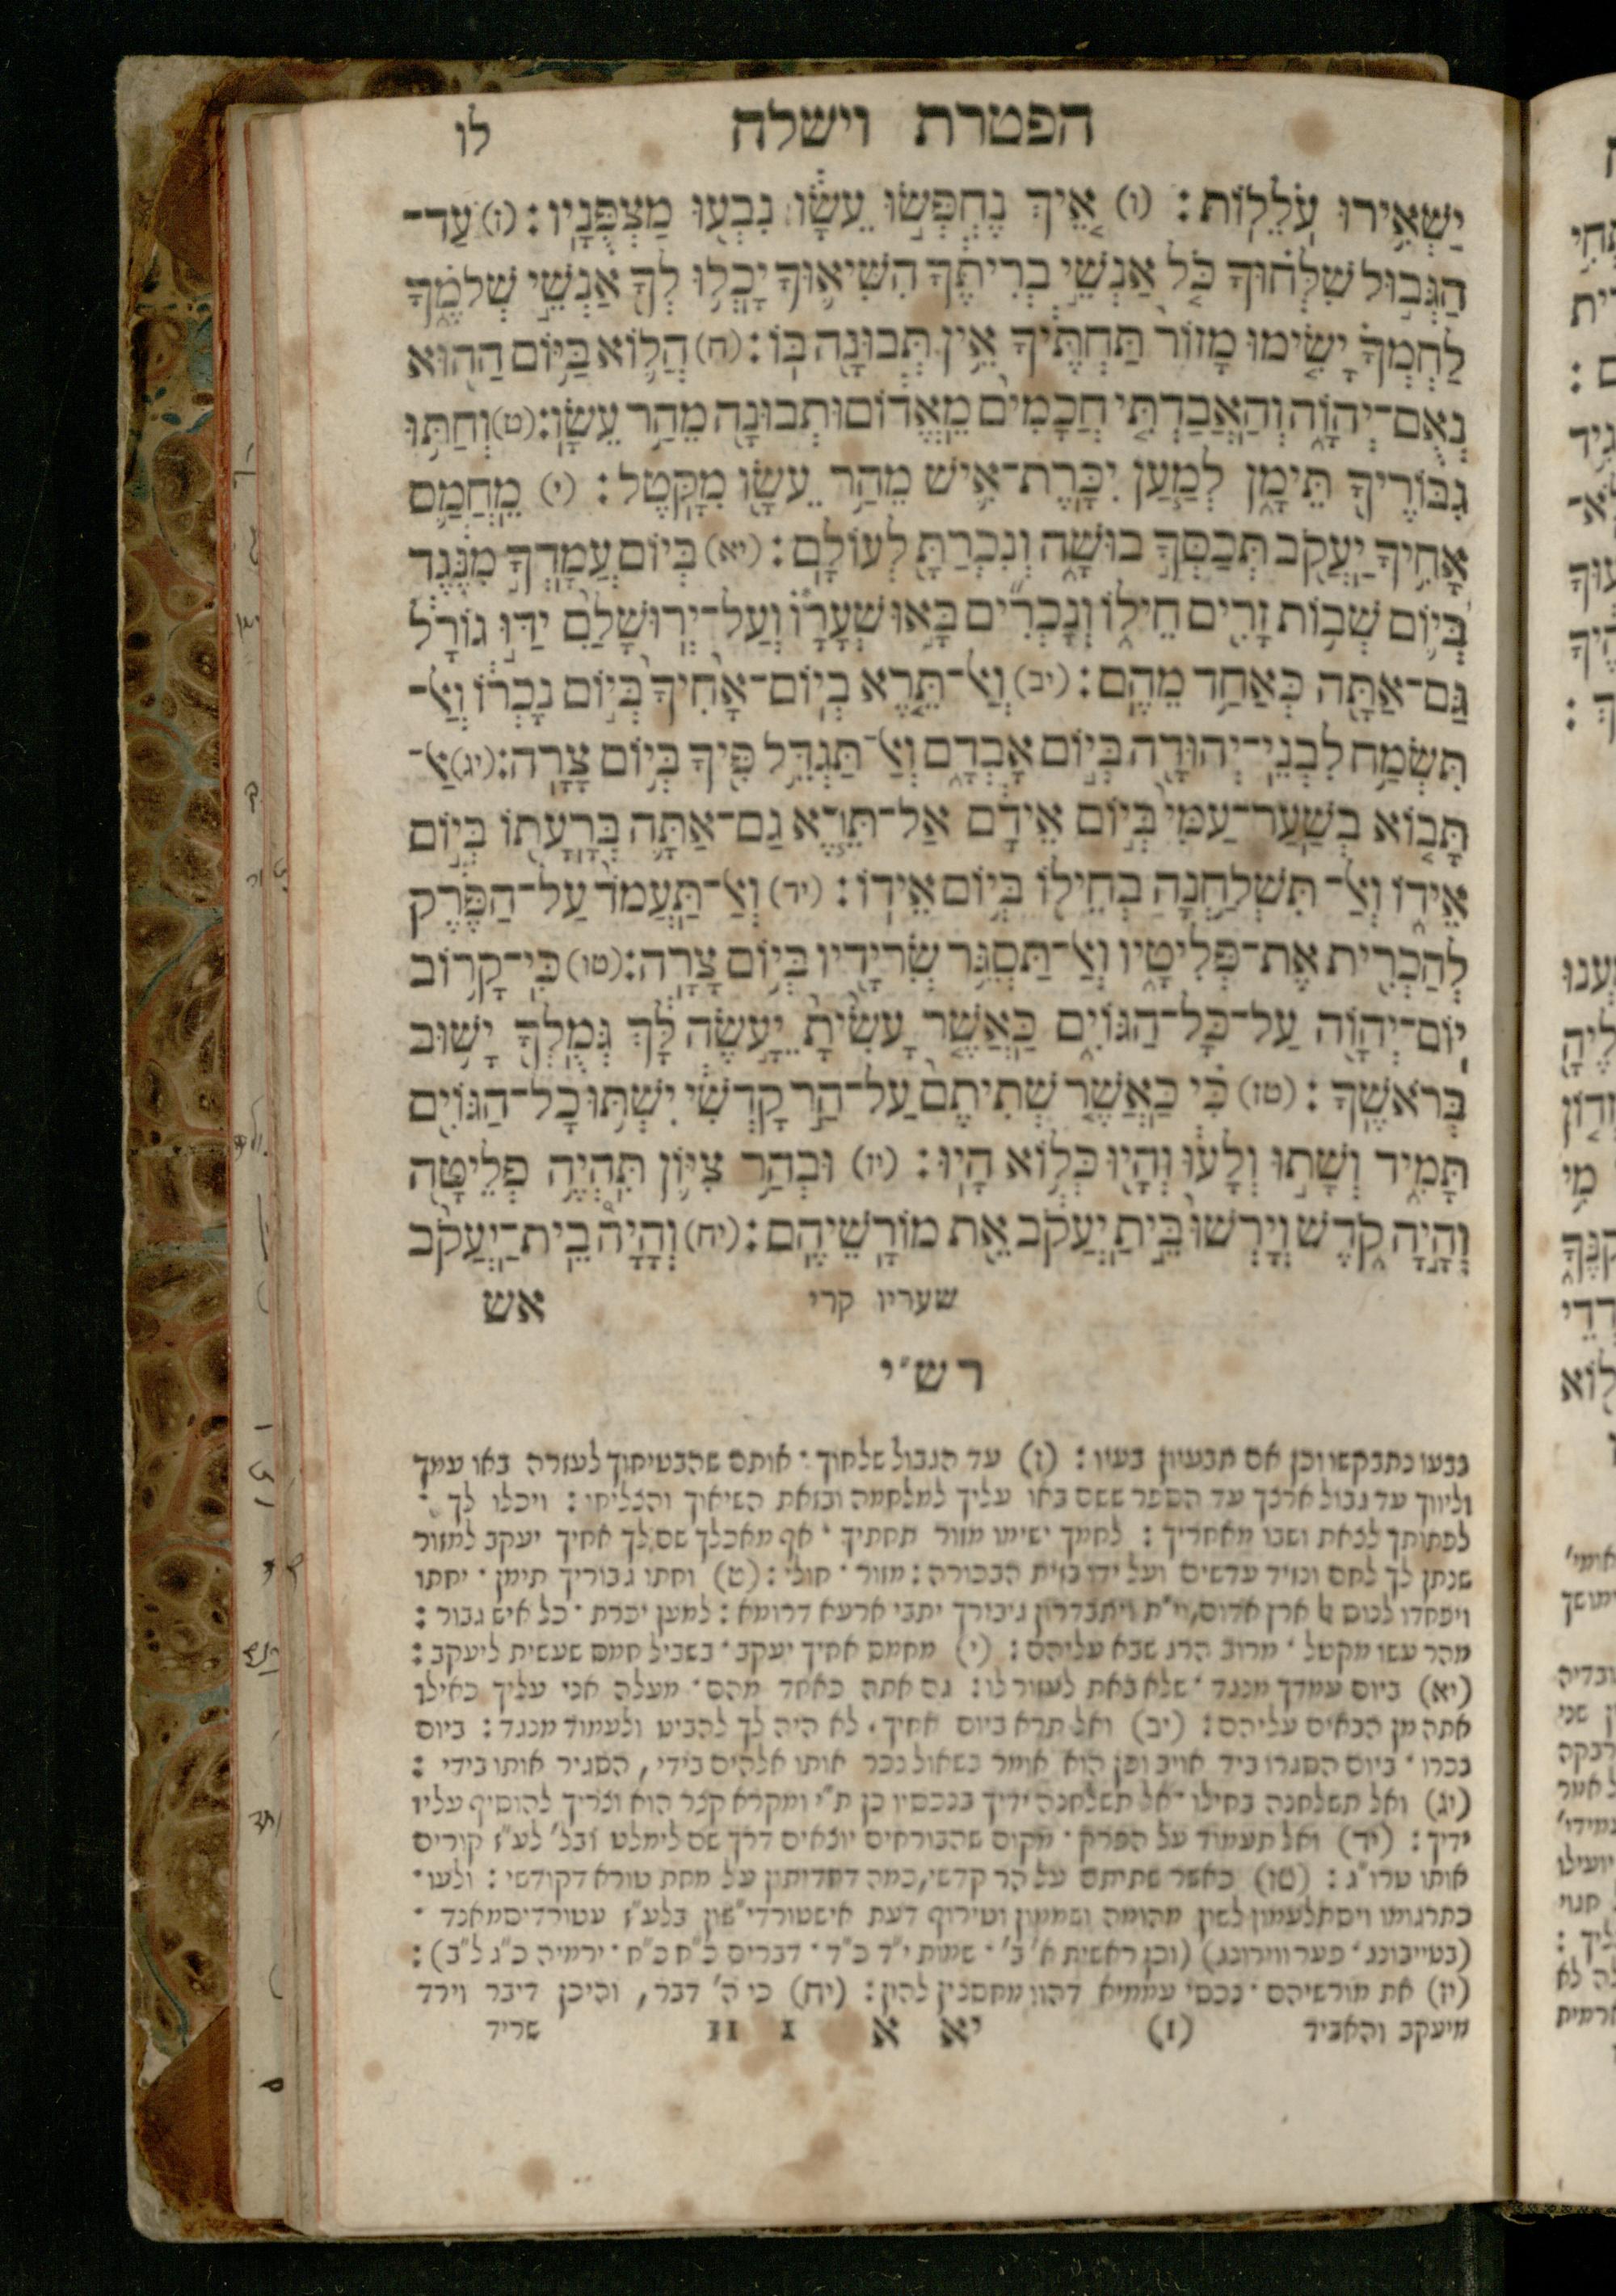 הפטרת וישלח לו
יַשְׁאִ֥ירוּ עֹֽלֵל֖וֹת׃ (ו) אֵ֚יךְ נֶחְפְּשׂ֣וּ עֵשָׂ֔ו נִבְע֖וּ מַצְפֻּנָֽיו׃ (ז) עַֽד־
הַגְּב֣וּל שִׁלְּח֗וּךָ כֹּ֚ל אַנְשֵׁ֣י בְרִיתֶ֔ךָ הִשִּׁיא֛וּךָ יָכְל֥וּ לְךָ֖ אַנְשֵׁ֣י שְׁלֹמֶ֑ךָ
לַחְמְךָ֗ יָשִׂ֤ימוּ מָזוֹר֙ תַּחְתֶּ֔יךָ אֵ֥ין תְּבוּנָ֖ה בּֽוֹ׃ (ח) הֲל֛וֹא בַּיּ֥וֹם הַה֖וּא
נְאֻם־יְהוָ֑ה וְהַאֲבַדְתִּ֤י חֲכָמִים֙ מֵֽאֱד֔וֹם וּתְבוּנָ֖ה מֵהַ֥ר עֵשָֽׂו׃ (ט) וְחַתּ֥וּ
גִבּוֹרֶ֖יךָ תֵּימָ֑ן לְמַ֧עַן יִכָּֽרֶת־אִ֛ישׁ מֵהַ֥ר עֵשָׂ֖ו מִקָּֽטֶל׃ (י) מֵחֲמַ֛ס
אָחִ֥יךָ יַעֲקֹ֖ב תְּכַסְּךָ֣ בוּשָׁ֑ה וְנִכְרַ֖תָּ לְעוֹלָֽם׃ (יא) בְּיוֹם֙ עֲמָֽדְךָ֣ מִנֶּ֔גֶד
בְּי֛וֹם שְׁב֥וֹת זָרִ֖ים חֵיל֑וֹ וְנָכְרִ֞ים בָּ֣אוּ שְׁעָרָ֗ו וְעַל־יְרֽוּשָׁלִַ֙ם֙ יַדּ֣וּ גוֹרָ֔ל
גַּם־אַתָּ֖ה כְּאַחַ֥ד מֵהֶֽם׃ (יב) וְאַל־תֵּ֤רֶא בְיוֹם־אָחִ֙יךָ֙ בְּי֣וֹם נָכְר֔וֹ וְאַל־
תִּשְׂמַ֥ח לִבְנֵֽי־יְהוּדָ֖ה בְּי֣וֹם אָבְדָ֑ם וְאַל־תַּגְדֵּ֥ל פִּ֖יךָ בְּי֥וֹם צָרָֽה׃ (יג) אַל־
תָּב֤וֹא בְשַֽׁעַר־עַמִּי֙ בְּי֣וֹם אֵידָ֔ם אַל־תֵּ֧רֶא גַם־אַתָּ֛ה בְּרָעָת֖וֹ בְּי֣וֹם
אֵיד֑וֹ וְאַל־תִּשְׁלַ֥חְנָה בְחֵיל֖וֹ בְּי֥וֹם אֵידֽוֹ׃ (יד) וְאַֽל־תַּעֲמֹד֙ עַל־הַפֶּ֔רֶק
לְהַכְרִ֖ית אֶת־פְּלִיטָ֑יו וְאַל־תַּסְגֵּ֥ר שְׂרִידָ֖יו בְּי֥וֹם צָרָֽה׃ (טו) כִּֽי־קָר֥וֹב
יוֹם־יְהוָ֖ה עַל־כָּל־הַגּוֹיִ֑ם כַּאֲשֶׁ֤ר עָשִׂ֙יתָ֙ יֵעָ֣שֶׂה לָּ֔ךְ גְּמֻלְךָ֖ יָשׁ֥וּב
בְּרֹאשֶֽׁךָ׃ (טז) כִּ֗י כַּֽאֲשֶׁ֤ר שְׁתִיתֶם֙ עַל־הַ֣ר קָדְשִׁ֔י יִשְׁתּ֥וּ כָֽל־הַגּוֹיִ֖ם
תָּמִ֑יד וְשָׁת֣וּ וְלָע֔וּ וְהָי֖וּ כְּל֥וֹא הָיֽוּ׃ (יז) וּבְהַ֥ר צִיּ֛וֹן תִּהְיֶ֥ה פְלֵיטָ֖ה
וְהָ֣יָה קֹ֑דֶשׁ וְיָֽרְשׁוּ֙ בֵּ֣ית יַֽעֲקֹ֔ב אֵ֖ת מוֹרָֽשֵׁיהֶֽם׃ (יח) וְהָיָה֩ בֵית־יַעֲקֹ֨ב
שעריו קרי אש
רש״י
נבעו נתבקשו וכן אם תבעיון בעיו : (ז) עד הגבול שלחוך · אותם שהבטיחוך לעזרה באו עמך
וליווך עד גבול ארצך עד הספר ששם באו עליך למלחמה ובזאת השיאוך והצליחו : ויכלו לך ·
לפתותך לצאת ושבו מאחריך : לחמך ישימו מזור תחתיך · אף מאכלך שם לך אחיך יעקב למזור
שנתן לך לחם ונזיד עדשים ועל ידו בזית הבכורה : מזור · חולי : (ט) וחתו גבוריך תימן · יחתו
ויפחדו לנוס ארץ אדום, וי״ת ויתברון גיבורך יתבי ארעא דרומא : למען יכרת · כל איש גבור :
מהר עשו מקטל · מרוב הרג שבא עליהם : (י) מחמס אחיך יעקב · בשביל חמס שעשית ליעקב :
(יא) ביום עמדך מנגד · שלא באת לעזור לו : גם אתה כאחד מהם · מעלה אני עליך כאילו
אתה מן הבאים עליהם : (יב) ואל תרא ביום אחיך · לא היה לך להביט ולעמוד מנגד : ביום
נכרו · ביום הסגרו ביד אויב וכן הוא אומר בשאול נכר אותו אלהים בידי, הסגיר אותו בידי :
(יג) ואל תשלחנה בחילו · אל תשלחנה ידיך בנכסיו כן ת״י ומקרא קצר הוא וצריך להוסיף עליו
ידיך : (יד) ואל תעמוד על הפרק · מקום שהבורחים יוצאים דרך שם לימלט ובל׳ לע״ז קורים
אותו טרו״ג : (טו) כאשר שתיתם על הר קדשי, כמה דחדיתון על מחת טורא דקודשי : ולעו ·
כתרגומו ויסתלעמון לשון מהומה ושממון וטירוף דעת אישטורדי״שון בלע״ז עטורדיסמאנד ·
(בטייבונג · פערווירונג) (וכן ראשית א׳ ב׳ · שמות י״ד כ״ד · דברים כ״ח כ״ח · ירמיה כ״ג ל״ב) :
(יז) את מורשיהם · נכסי עממיא דהוו מחסנין להון : (יח) כי ה׳ דבר, והיכן דיבר וירד
מיעקב והאביד (I) יא א I II שריד